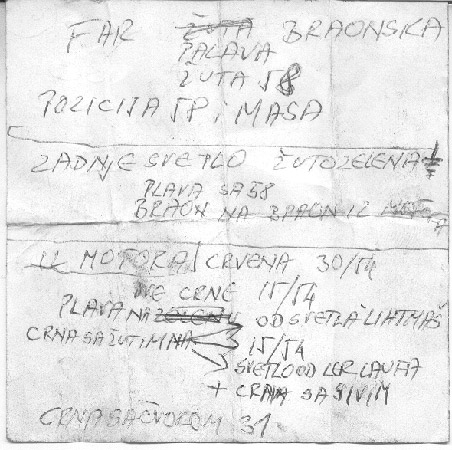 FAR ŽUTA BRAONSKA
PLAVA
ŽUTA 58
POZICIJA 58 i MASA
ZADNJE SVETLO ŽUTOZELENA
PLAVA SA 58
BRAON NA BRAON IZ
IZ MOTORA CRVENA 30/54
DVE CRNE 15/54
PLAVA NA ZELENU OD SVETLA LIHTMAŠ
CRNA SA ŽUTIM NA 15/54
SVETLO OD LER LAUFA
+ CRNA SA SIVIM
CRNA SA ČVOROM 31